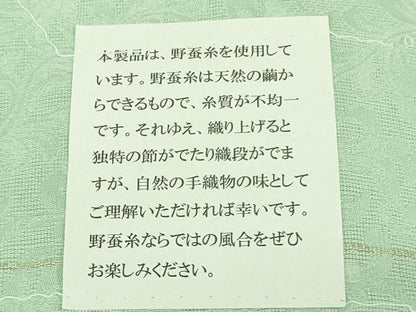 本製品は、野蚕糸を使用して
います。野蚕糸は天然の繭か
らできるもので、糸質が不均一
です。それゆえ、織り上げると
独特の節がでたり織段がでま
すが、自然の手織物の味として
ご理解いただければ幸いです。
野蚕糸ならではの風合をぜひ
お楽しみください。